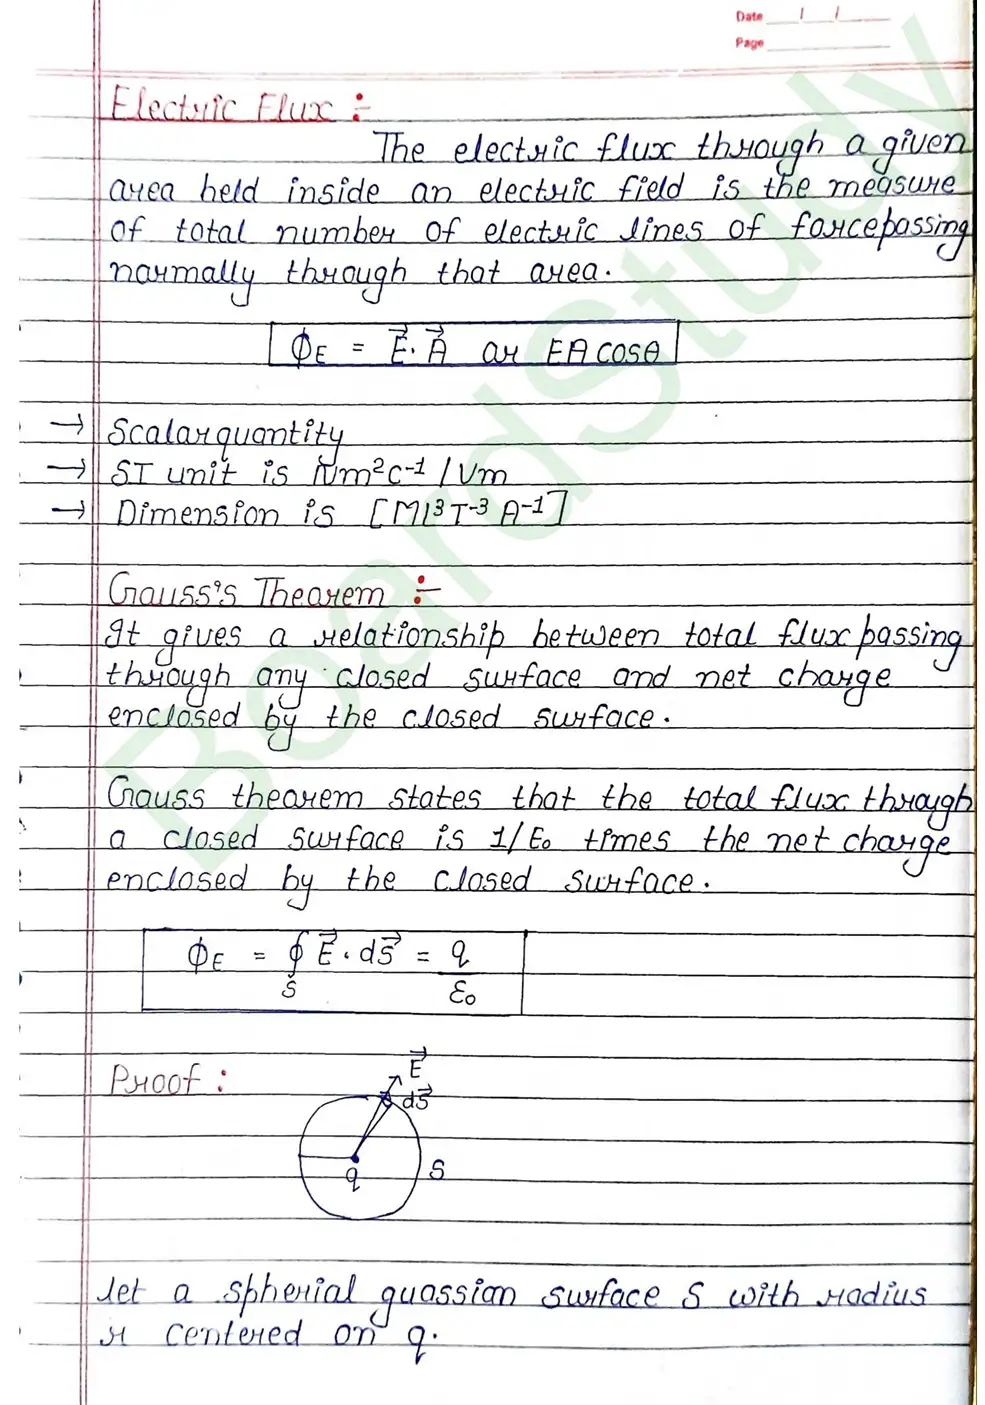 Date / /
Page
Electric Flux :-
The electric flux through a given
area held inside an electric field is the measure
of total number of electric lines of force passing
normally through that area.
ϕE = E⃗ . A⃗ or EA cosθ
→ Scalar quantity
→ SI unit is Nm²C⁻¹ / Vm
→ Dimension is [ML³T⁻³A⁻¹]
Gauss's Theorem :-
It gives a relationship between total flux passing
through any closed surface and net charge
enclosed by the closed surface.
Gauss theorem states that the total flux through
a closed surface is 1/ε₀ times the net charge
enclosed by the closed surface.
ϕE = ∮S E⃗ . dS⃗ = q/ε₀
Proof :
E⃗
dS⃗
q
S
let a spherial guassian surface S with radius
r centered on q.
BoardStudy